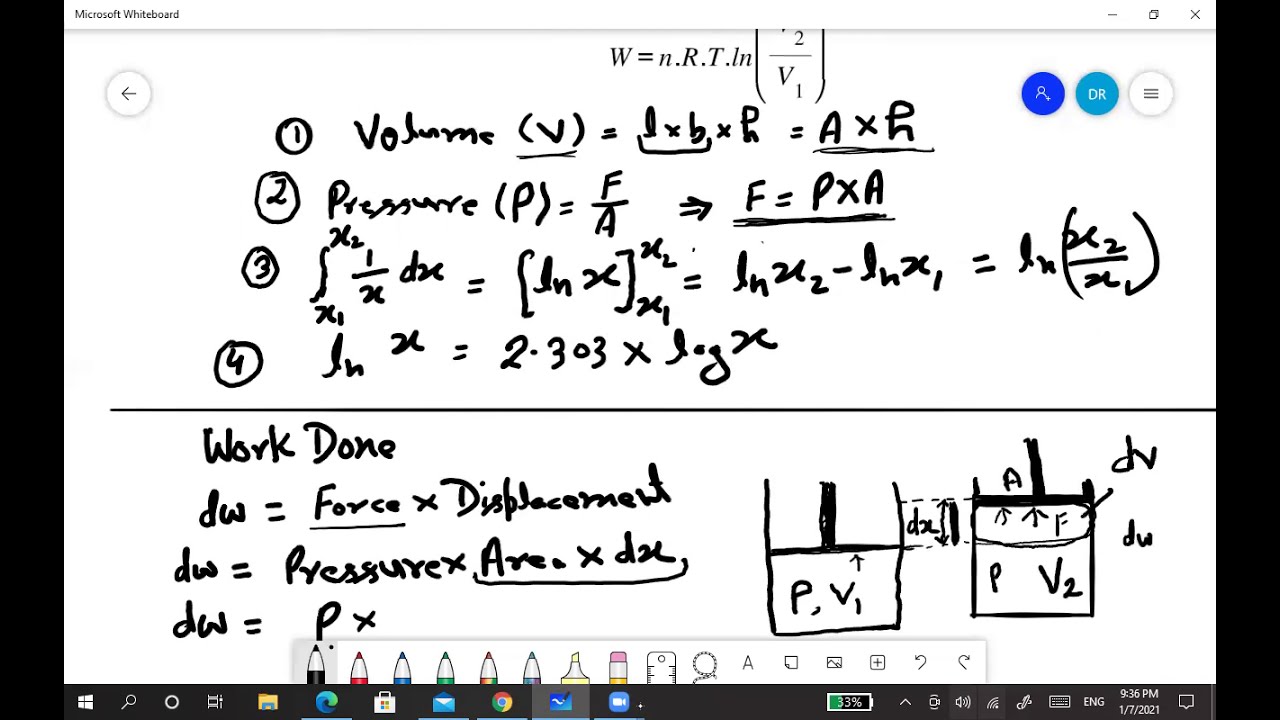 Microsoft Whiteboard
W = n.R.T.ln(V2/V1)
DR
① Volume (V) = l × b × h = A × h
② Pressure (P) = F/A ⇒ F = P × A
③ ∫x1^x2 1/x dx = [ln x]x1^x2 = ln x2 - ln x1 = ln(x2/x1)
④ ln x = 2.303 × log x
Work Done
dw = Force × Displacement
dw = Pressure × Area × dx
dw = P ×
P, V1
dx
A
F
P V2
dV
dw
A
33%
ENG
9:36 PM
1/7/2021